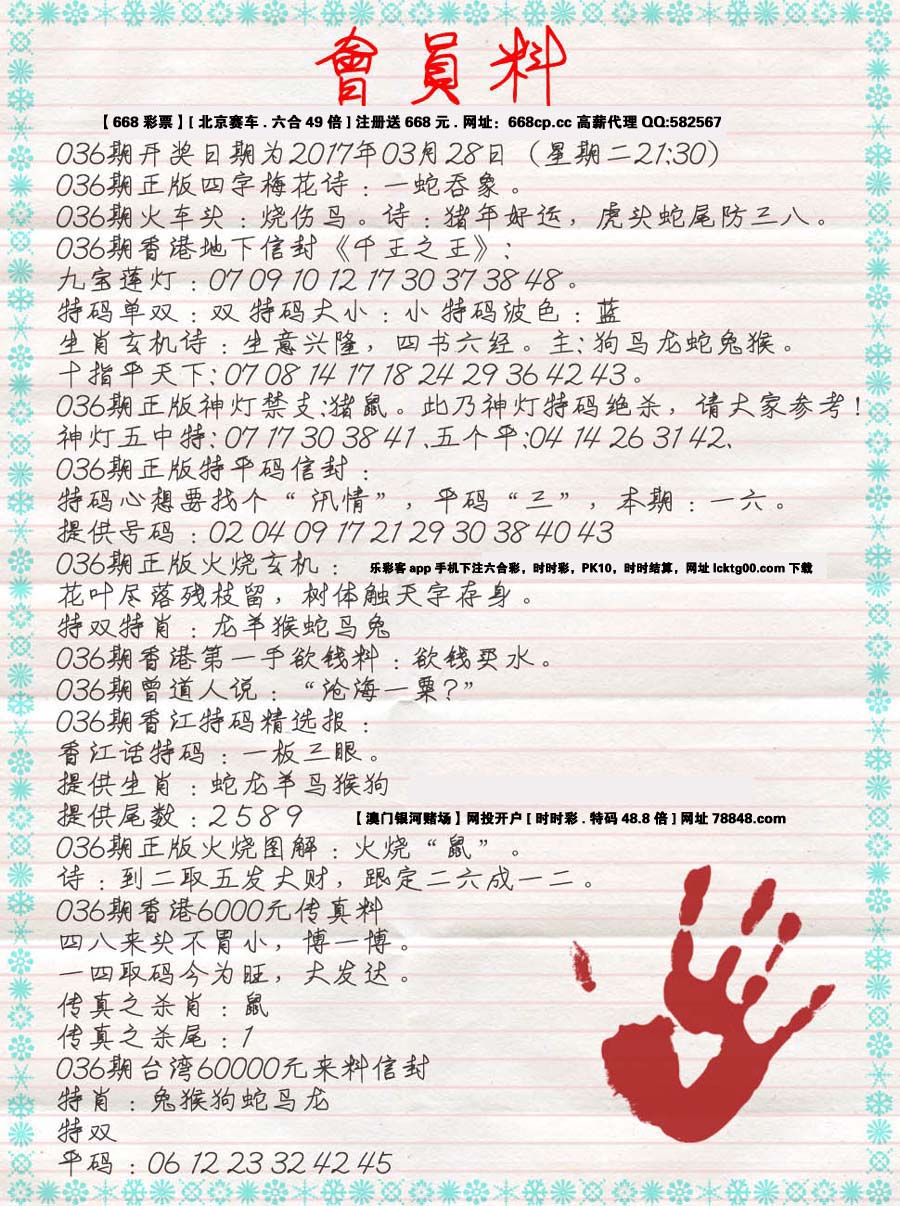 會員料
【668彩票】[北京赛车.六合49倍]注册送668元.网址：668cp.cc 高薪代理QQ:582567
036期开奖日期为2017年03月28日（星期二21:30）
036期正版四字梅花诗：一蛇吞象。
036期火车头：烧伤鸟。诗：猪年好运，虎头蛇尾防三八。
036期香港地下信封《千王之王》：
九宝莲灯：07 09 10 12 17 30 37 38 48。
特码单双：双 特码大小：小 特码波色：蓝
生肖玄机诗：生意兴隆，四书六经。主：狗马龙蛇兔猴。
十指平天下：07 08 14 17 18 24 29 36 42 43。
036期正版神灯禁支：猪鼠。此乃神灯特码绝杀，请大家参考！
神灯五中特：07 17 30 38 41、五个平：04 14 26 31 42、
036期正版特平码信封：
特码心想要找个“汛情”，平码“三”，本期：一六。
提供号码：02 04 09 17 21 29 30 38 40 43
036期正版火烧玄机： 乐彩客app手机下注六合彩，时时彩，PK10，时时结算，网址lcktg00.com下载
花叶尽落残枝留，树体触天字存身。
特双特肖：龙羊猴蛇马兔
036期香港第一手欲钱料：欲钱买水。
036期曾道人说：“沧海一粟？”
036期香江特码精选报：
香江话特码：一板三眼。
提供生肖：蛇龙羊马猴狗
提供尾数：2 5 8 9 【澳门银河赌场】网投开户[时时彩.特码48.8倍]网址78848.com
036期正版火烧图解：火烧“鼠”。
诗：到二取五发大财，跟定二六成一二。
036期香港6000元传真料
四八来头不胃小，博一博。
一四取码今为旺，大发达。
传真之杀肖：鼠
传真之杀尾：1
036期台湾60000元来料信封
特肖：兔猴狗蛇马龙
特双
平码：06 12 23 32 42 45